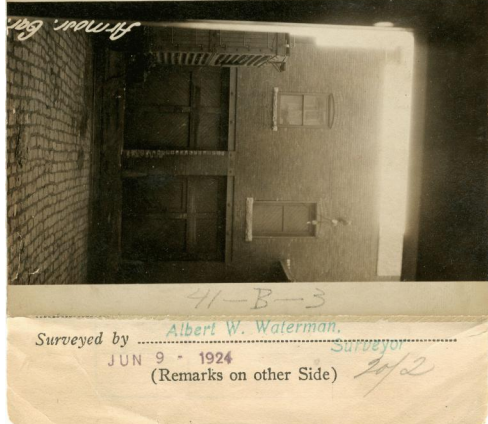 Armour. Gar.
41-B-3
Surveyed by Albert W. Waterman,
Surveyor
JUN 9 - 1924
(Remarks on other Side)